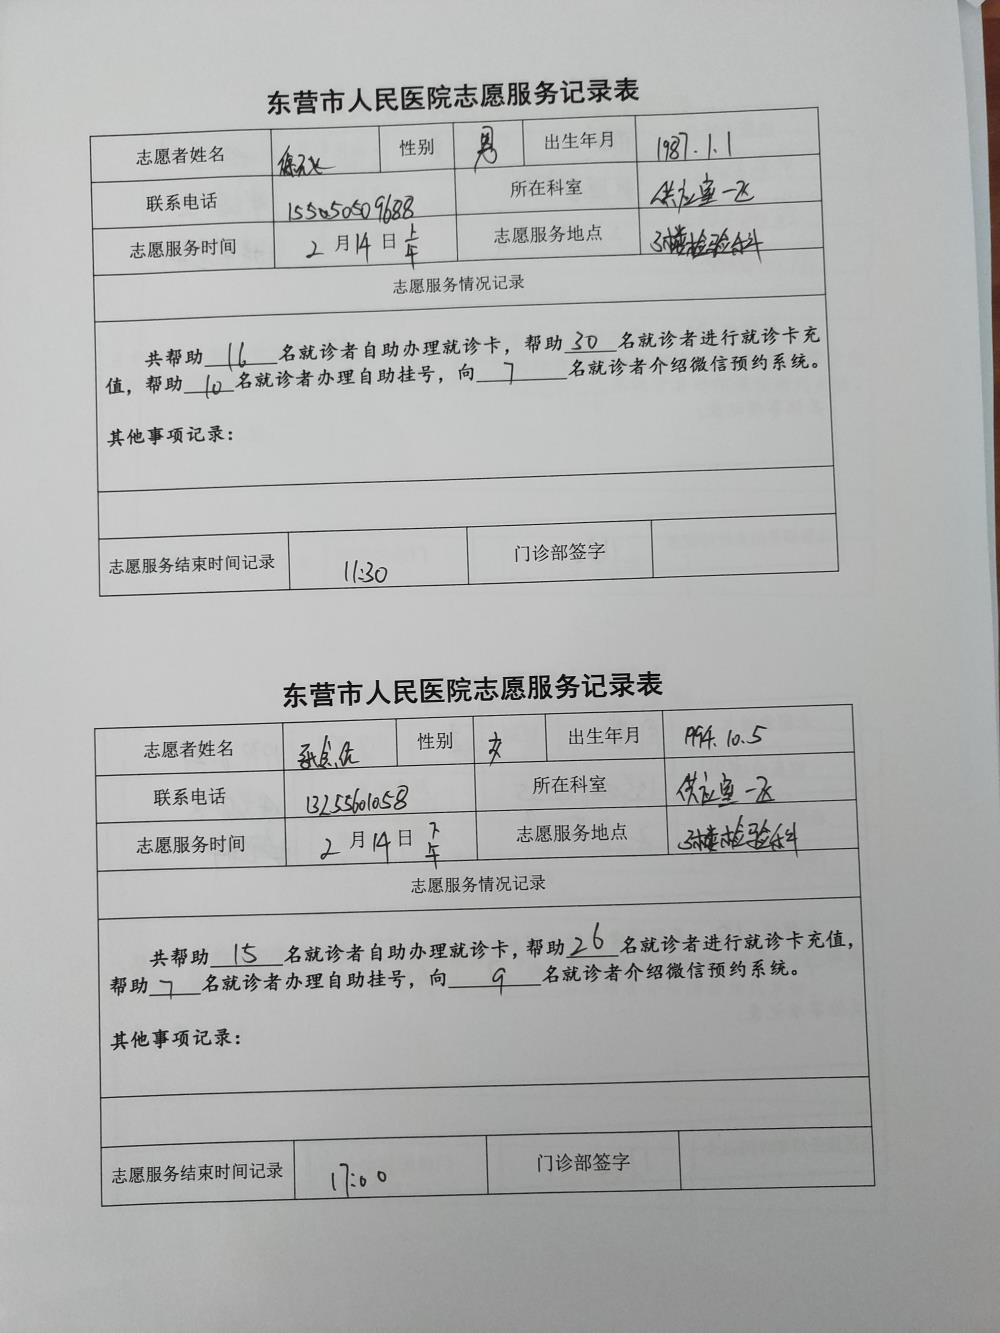 东营市人民医院志愿服务记录表
志愿者姓名 性别 男 出生年月 1987.1.1
联系电话 所在科室 供应室一区
志愿服务时间 2月14日上午 志愿服务地点 3楼检验科
志愿服务情况记录
共帮助16名就诊者自助办理就诊卡，帮助30名就诊者进行就诊卡充
值，帮助10名就诊者办理自助挂号，向7名就诊者介绍微信预约系统。
其他事项记录：
志愿服务结束时间记录 11:30 门诊部签字
东营市人民医院志愿服务记录表
志愿者姓名 性别 女 出生年月 1994.10.5
联系电话 13255601058 所在科室 供应室一区
志愿服务时间 2月14日下午 志愿服务地点 3楼检验科
志愿服务情况记录
共帮助15名就诊者自助办理就诊卡，帮助26名就诊者进行就诊卡充值，
帮助7名就诊者办理自助挂号，向9名就诊者介绍微信预约系统。
其他事项记录：
志愿服务结束时间记录 17:00 门诊部签字